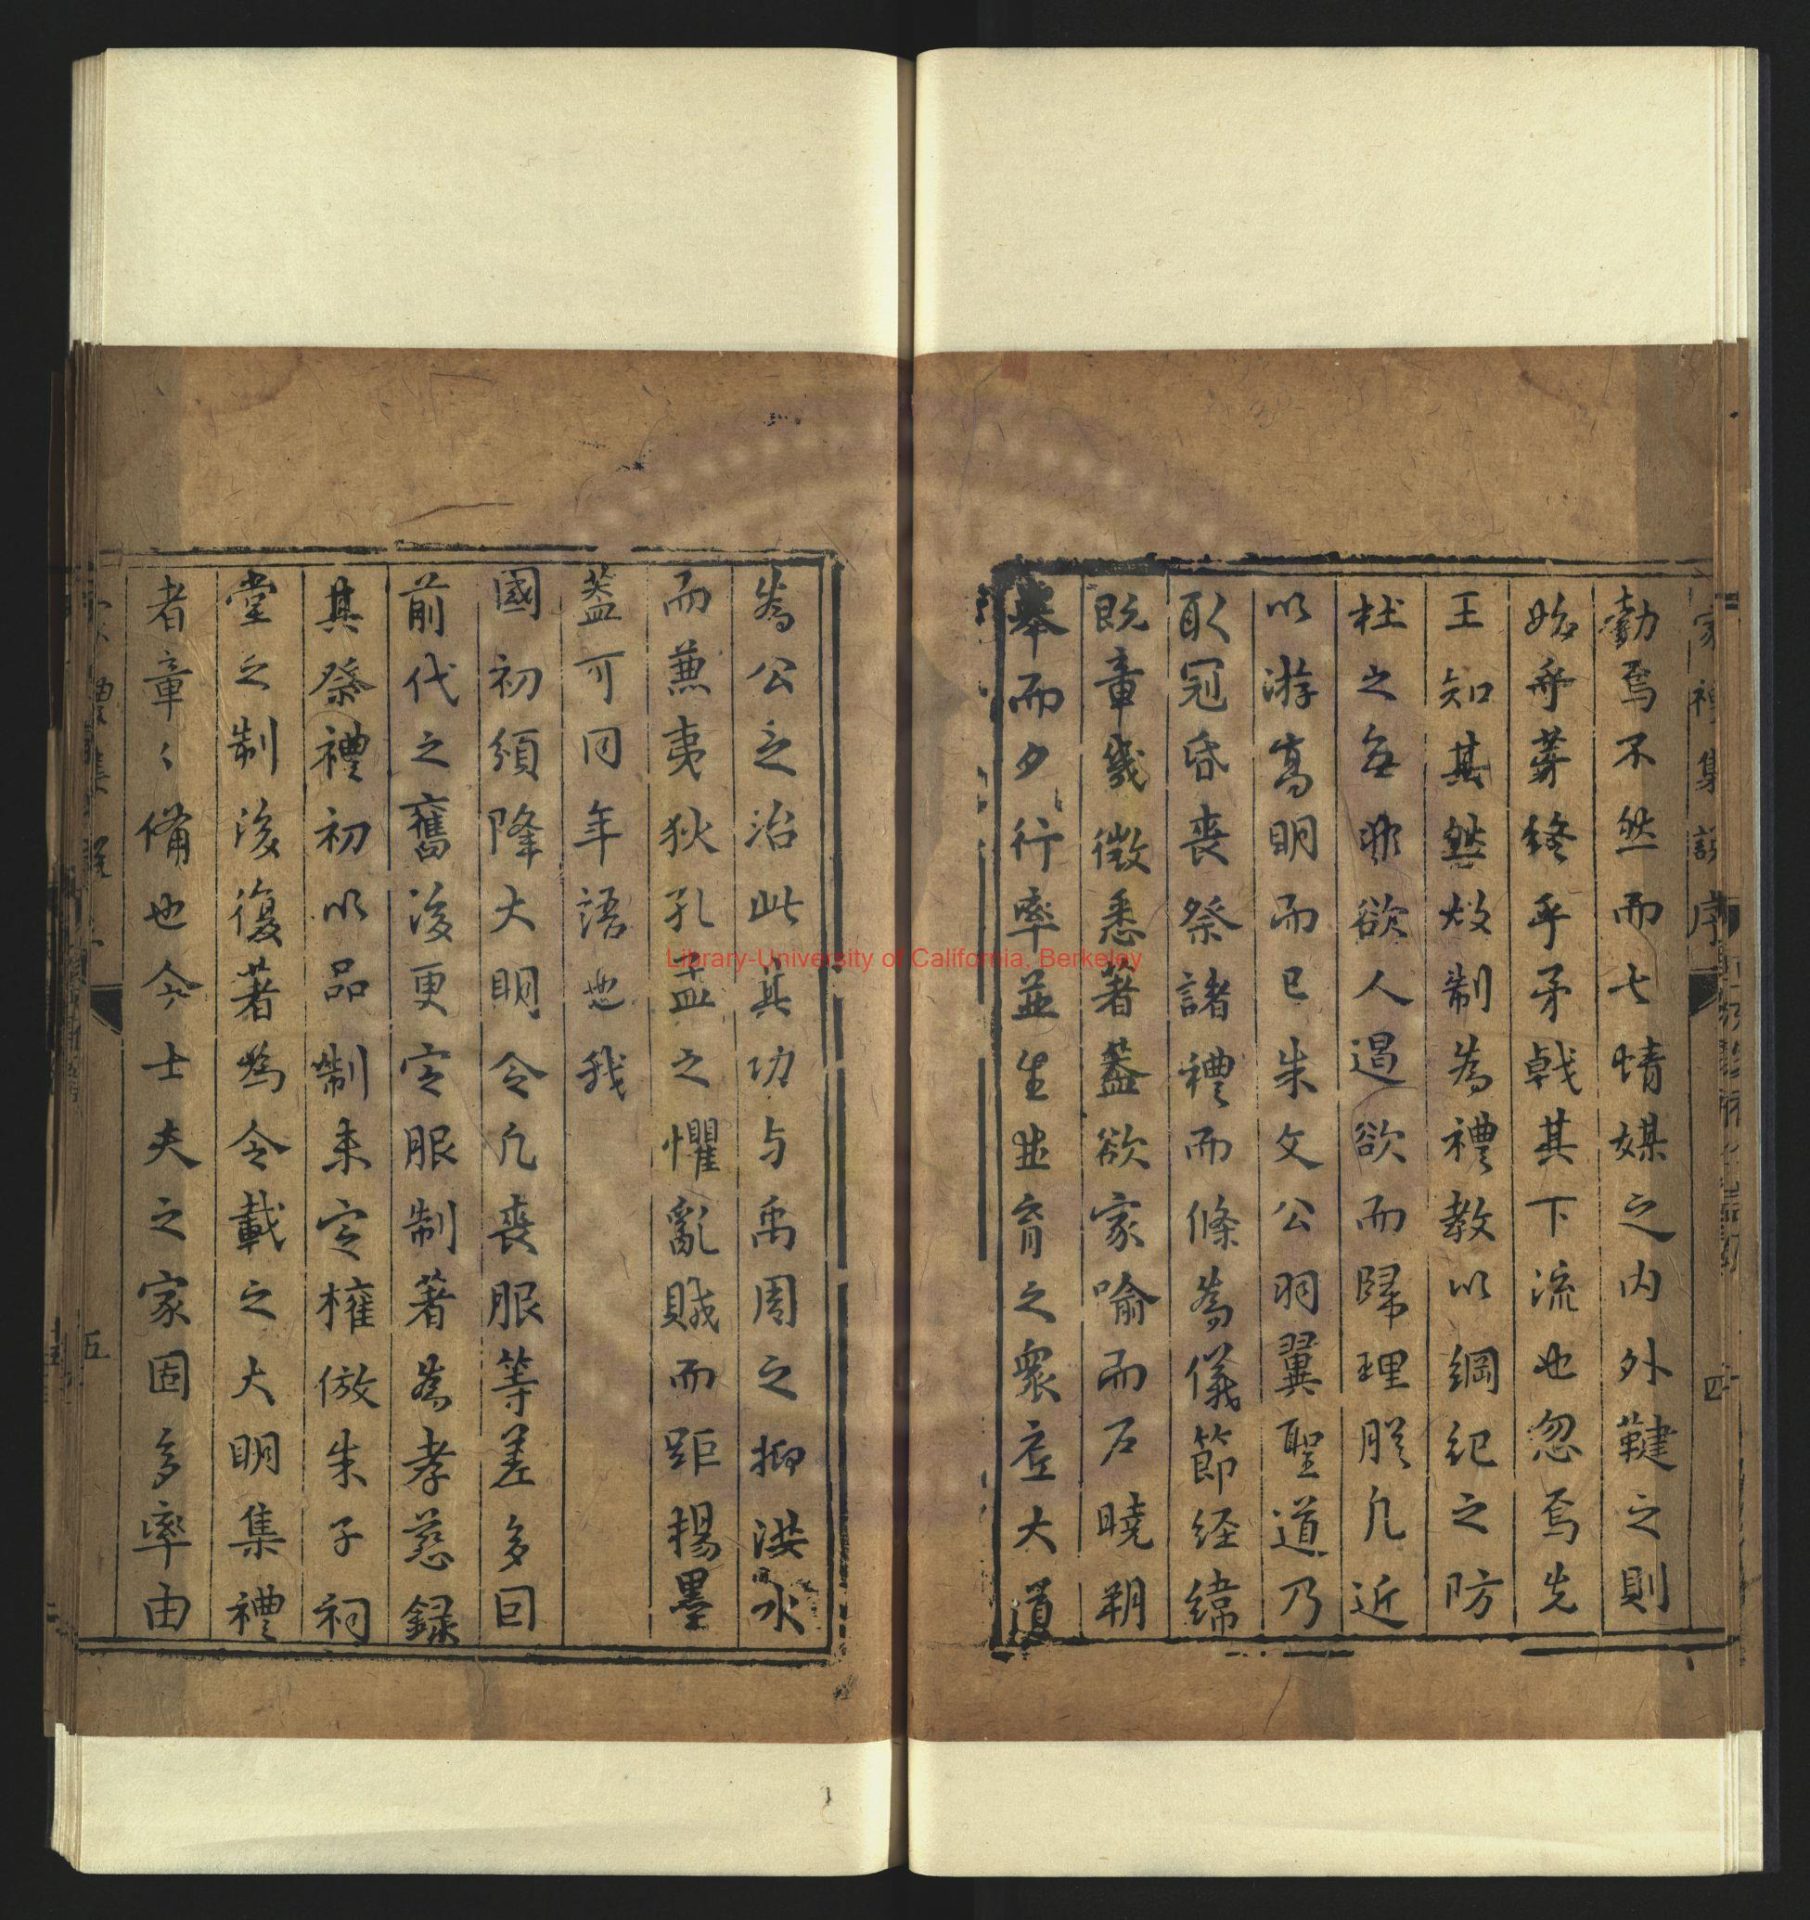 家禮集說序
勸焉不然而七情媒之内外鞬之則
始乎葬終乎矛戟其下流也忽焉先
王知其然故制為禮教以綱紀之防
杜之每非欲人遏欲而歸理朕凡近
以游髙明而已朱文公羽翼聖道乃
取冠昏喪祭諸禮而條為儀節経緯
既章幾微悉著蓋欲家喻而户曉朔
舉而夕行率並生並育之衆座大道
四
為公之治此其功与禹周之抑洪水
而兼夷狄孔孟之懼亂賊而距楊墨
蓋可同年語也我
國初頒降大明令凡喪服等差多因
前代之舊後更定服制著為孝慈録
其祭禮初以品制未定權倣朱子祠
堂之制後復著為令載之大明集禮
者章〻備也今士夫之家固多率由
五
Library-University of California, Berkeley